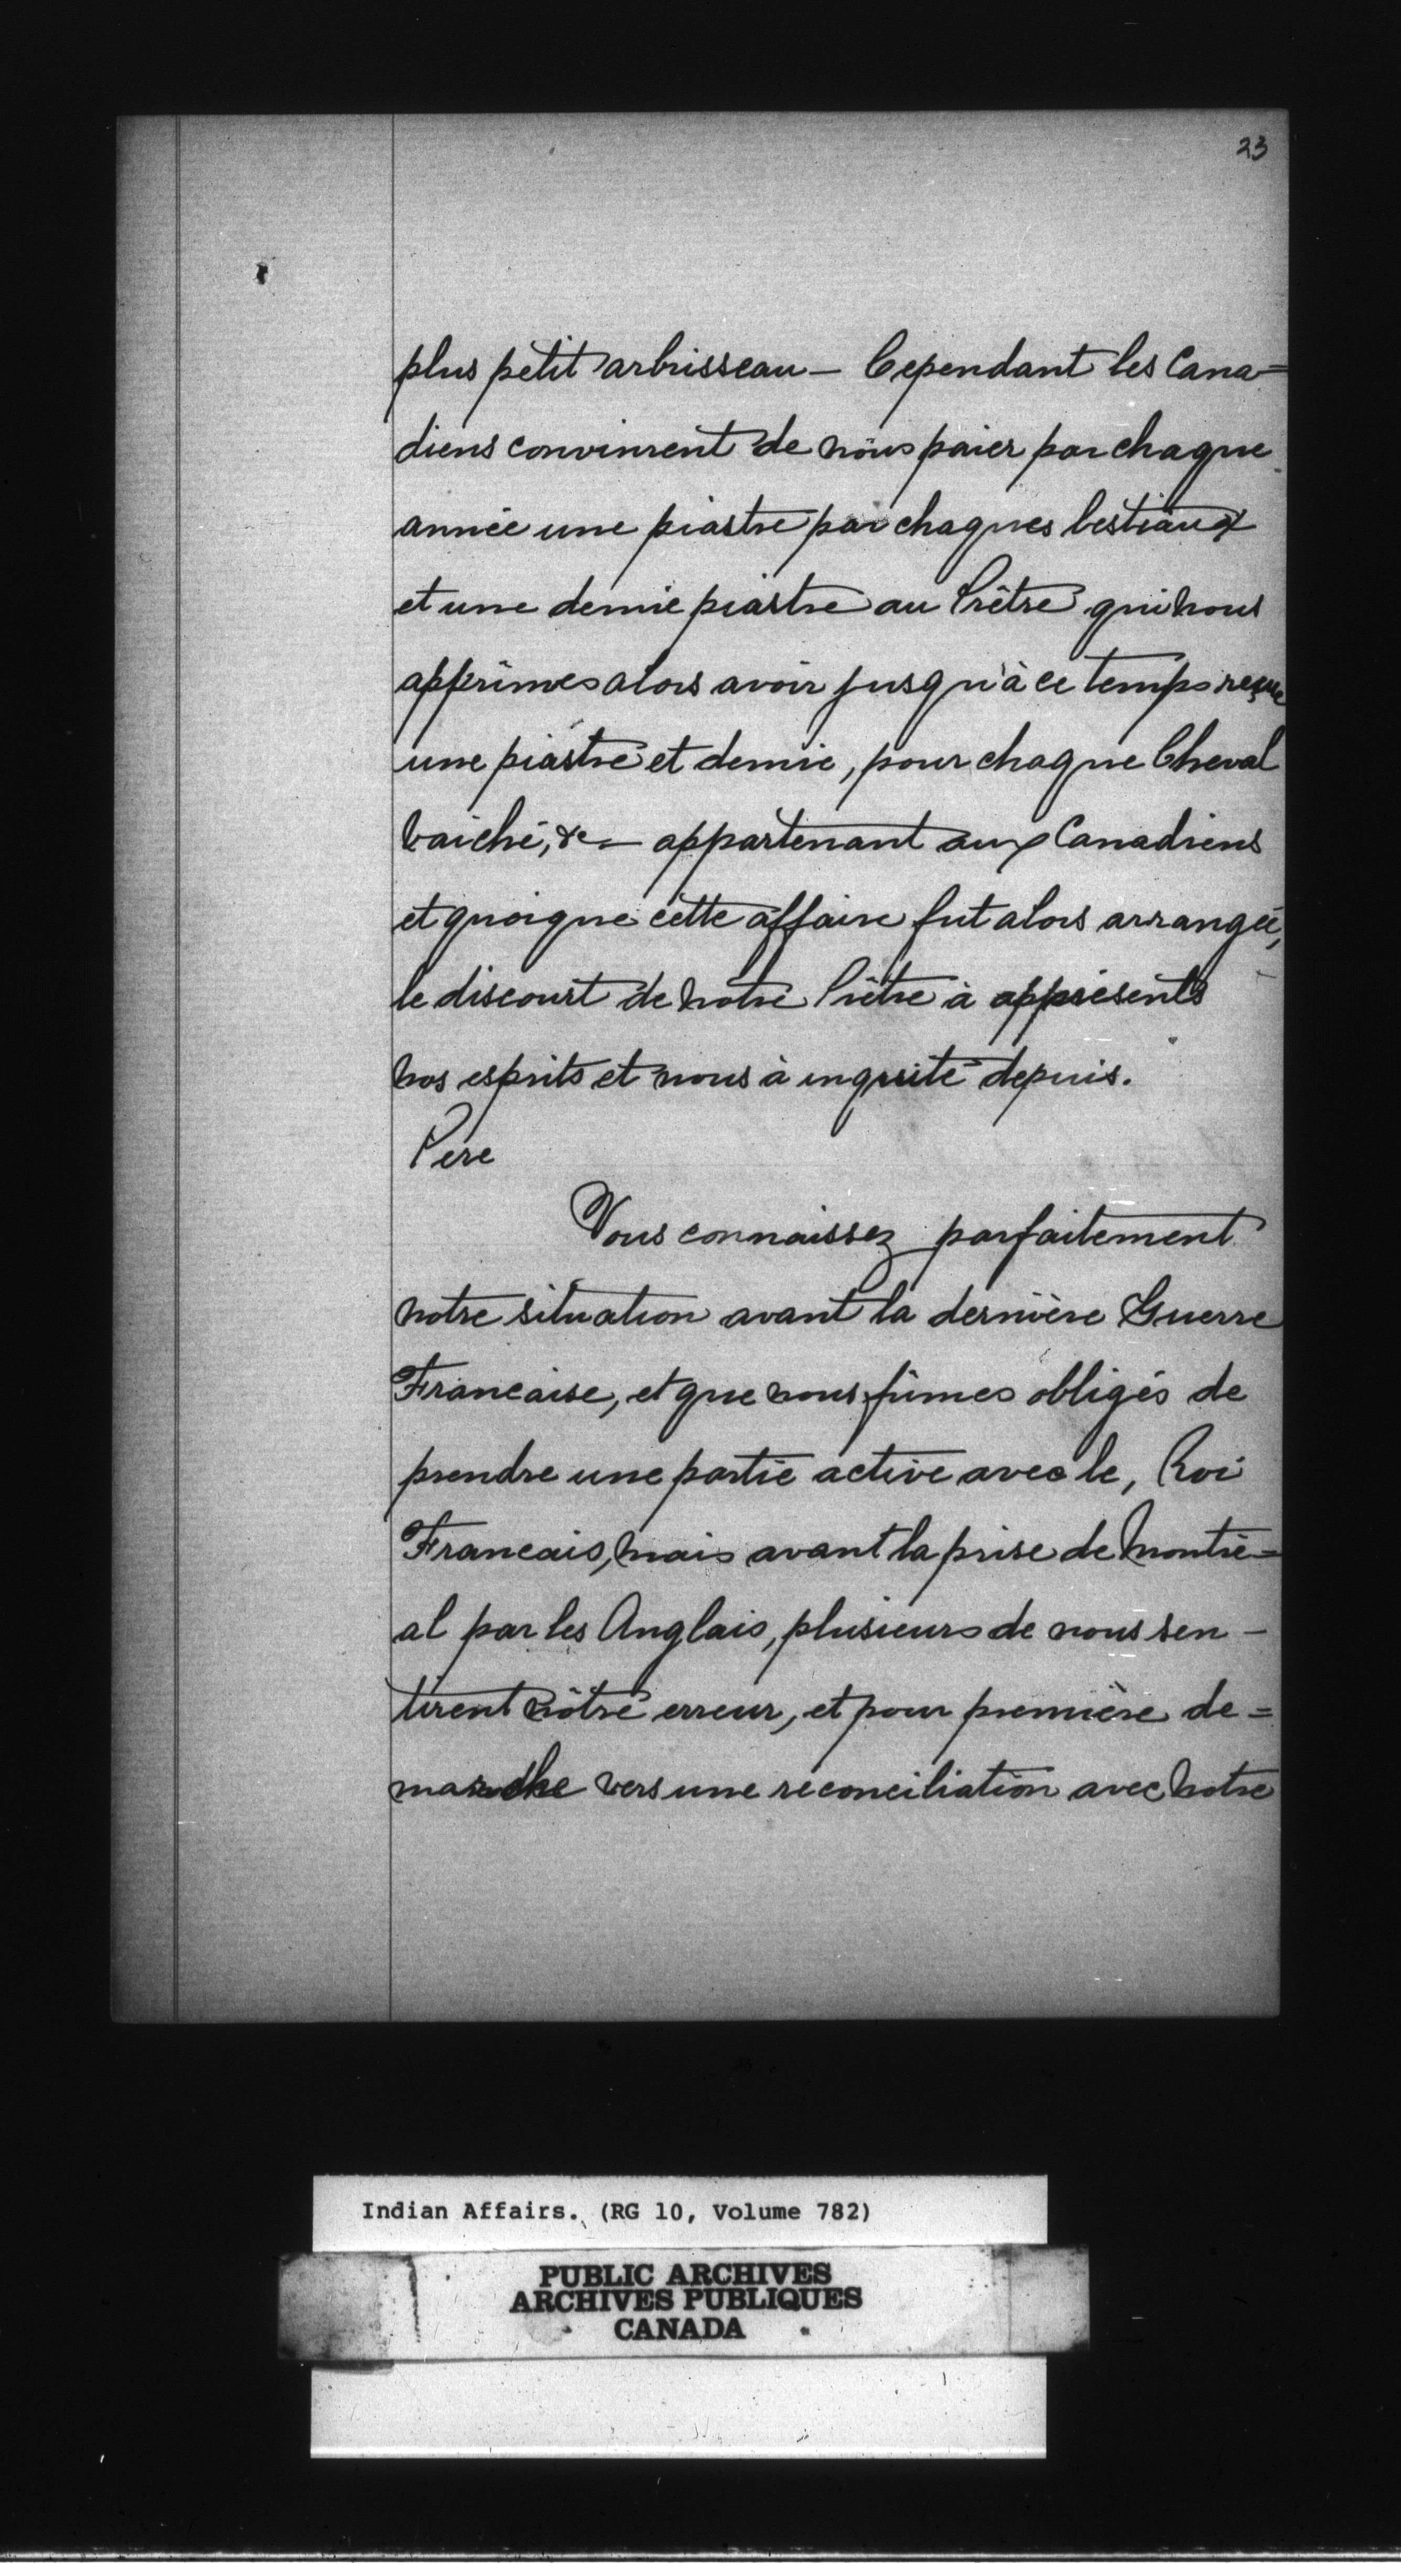 23
plus petit arbrisseau – Cependant les Cana=
diens convinrent de nous paier par chaque
année une piastre par chaques bestiaux
et une demie piastre au Prêtre qui nous
apprîmes alors avoir jusqu'à ce temps reçue
une piastre et demie, pour chaque Cheval
vaiche, &c – appartenant aux Canadiens
et quoique cette affaire fut alors arrangée,
le discourt de notre Prêtre à appresents
nos esprits et nous à inquité depuis.
Pere
Vous connaissez parfaitement
notre situation avant la dernière Guerre
Francaise, et que nous fûmes obligés de
prendre une partie active avec le, Roi
Francais, mais avant la prise de Montré=
al par les Anglais, plusieurs de nous sen –
tirent nôtre erreur, et pour première de=
marche vers une reconciliation avec notre
Indian Affairs. (RG 10, Volume 782)
PUBLIC ARCHIVES
ARCHIVES PUBLIQUES
CANADA